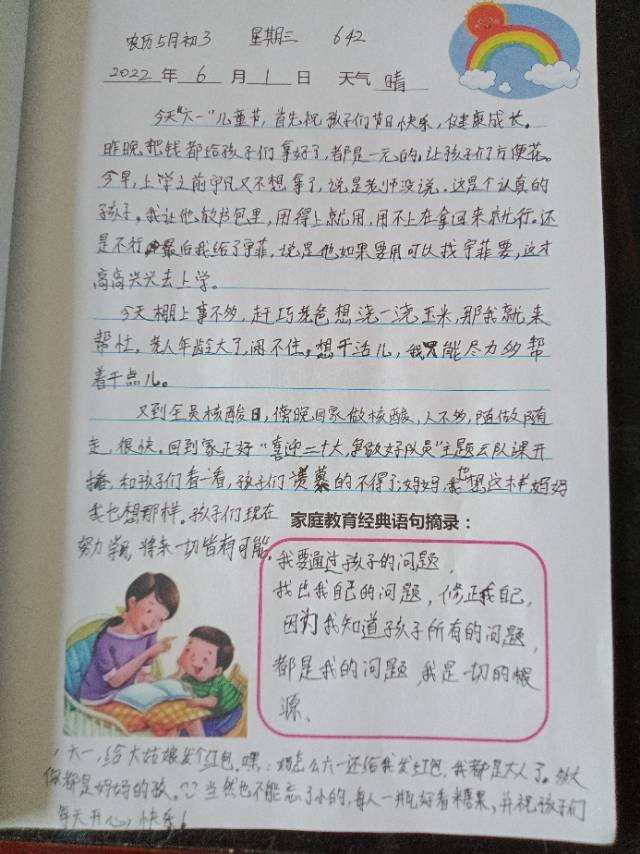 农历5月初3 星期三 642
2022 年 6 月 1 日 天气 晴
今天"六一"儿童节,首先祝孩子们节日快乐,健康成长。
昨晚把钱都给孩子们拿好了,都是一元的,让孩子们方便花。
今早,上学之前宇凡又不想拿了,说是老师没说。这是个认真的
孩子。我让他放书包里,用得上就用,用不上在拿回来就行。还
是不行,最后我给了宇菲,说是他如果要用可以找宇菲要,这才
高高兴兴去上学。
今天棚上事不多,赶巧老爸想浇一浇玉米,那我就来
帮忙。老人年龄大了,闲不住。想干活儿,我只能尽力多帮
着干点儿。
又到全员核酸日,傍晚回家做核酸,人不多,随做随
走,很快。回到家正好"喜迎二十大,争做好队员"主题云队课开
播,和孩子们看一看,孩子们羡慕的不得了:妈妈,我也想这样妈妈
我也想那样。孩子们现在
努力学习,将来一切皆有可能。
家庭教育经典语句摘录:
我要通过孩子的问题,
找出我自己的问题,修正我自己,
因为我知道孩子所有的问题,
都是我的问题,我是一切的根
源、
六一,给大姑娘发个红包。嘿:妈怎么六一还给我发红包,我都是大人了。多大
你都是妈妈的孩。当然也不能忘了小的,每人一瓶好看糖果,并祝孩子们
每天开心,快乐!